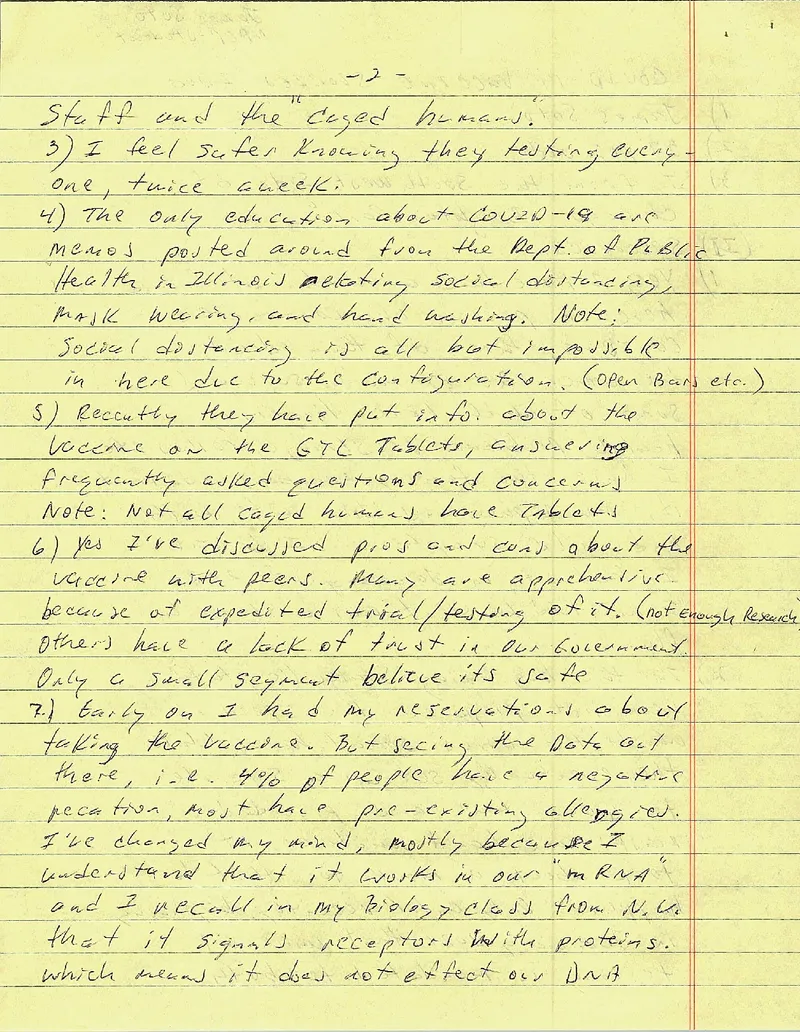 - 2 -
Staff and the "caged humans".
3) I feel safer knowing they testing every-
one, twice aweek.
4) The only education about COVID-19 are
memos posted around from the Dept. of Public
Health in Illinois relating social distancing,
mask wearing, and hand washing. Note:
Social distancing is all but impossible
in here due to the configuration. (Open Bars etc.)
5) Recently they have put info. about the
vaccine on the GTL Tablets, answering
frequently asked questions and concerns
Note: Not all caged humans have Tablets
6) Yes I've discussed pros and cons about the
vaccine with peers. Many are apprehensive
because of expedited trial/testing of it. (not Enough Research
Others have a lack of trust in our Government.
Only a small segment believe its safe
7.) Early on I had my reservations about
taking the vaccine. But seeing the Data out
there, i.e. 4% of people have a negative
recation, most have pre-existing allergies.
I've changed my mind, mostly because I
understand that it works in our "mRNA"
and I recall in my Biology class from N.U.
that it signals receptors with proteins.
which means it does not effect our DNA